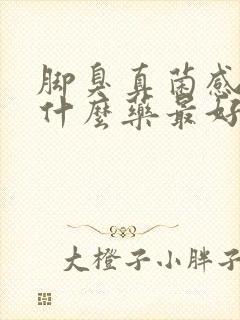 脚臭真菌感
什麼藥最好
大橙子小胖子